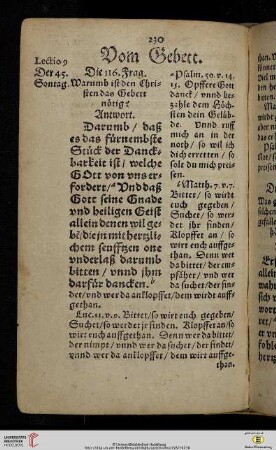 230
Vom Gebett.
Lectio 9
Der 45.
Sontag.
Die 116. Frag.
Warumb ist den Chri-
sten das Gebett
nötig?
Antwort.
Darumb / daß
es das fürnembste
Stück der Danck-
barkeit ist / welche
GOtt von vns er-
fordert / Vnd daß
Gott seine Gnade
vnd heiligen Geist
allein denen wil ge-
ben / die jn mit hertzli-
chem seufftzen one
vnderlaß darumb
bitten / vnnd jhm
darfür dancken.
a Psalm. 50. v. 14.
15. Opffere Gott
danck / vnnd be-
zahle dem Höch-
sten dein Gelüb-
de. Vnnd ruff
mich an in der
noth / so wil ich
dich erretten / so
solt du mich prei-
sen.
b Matth. 7. v. 7.
Bittet / so wirdt
euch gegeben /
Suchet / so wer-
det jhr finden /
Klopffet an / so
wirt euch auffge-
than. Denn wer
da bittet / der em-
pfähet / vnd wer
da suchet / der fin-
det / vnd wer da anklopffet / dem wirdt auff-
gethan.
Luc. 11. v. 9. Bittet / so wirt euch gegeben /
Suchet / so werdet jr finden. Klopffet an / so
wirt euch auffgethan. Denn wer da bittet /
der nimpt / vnnd wer da suchet / der findet /
vnnd wer da anklopffet / dem wirt auffge-
than.